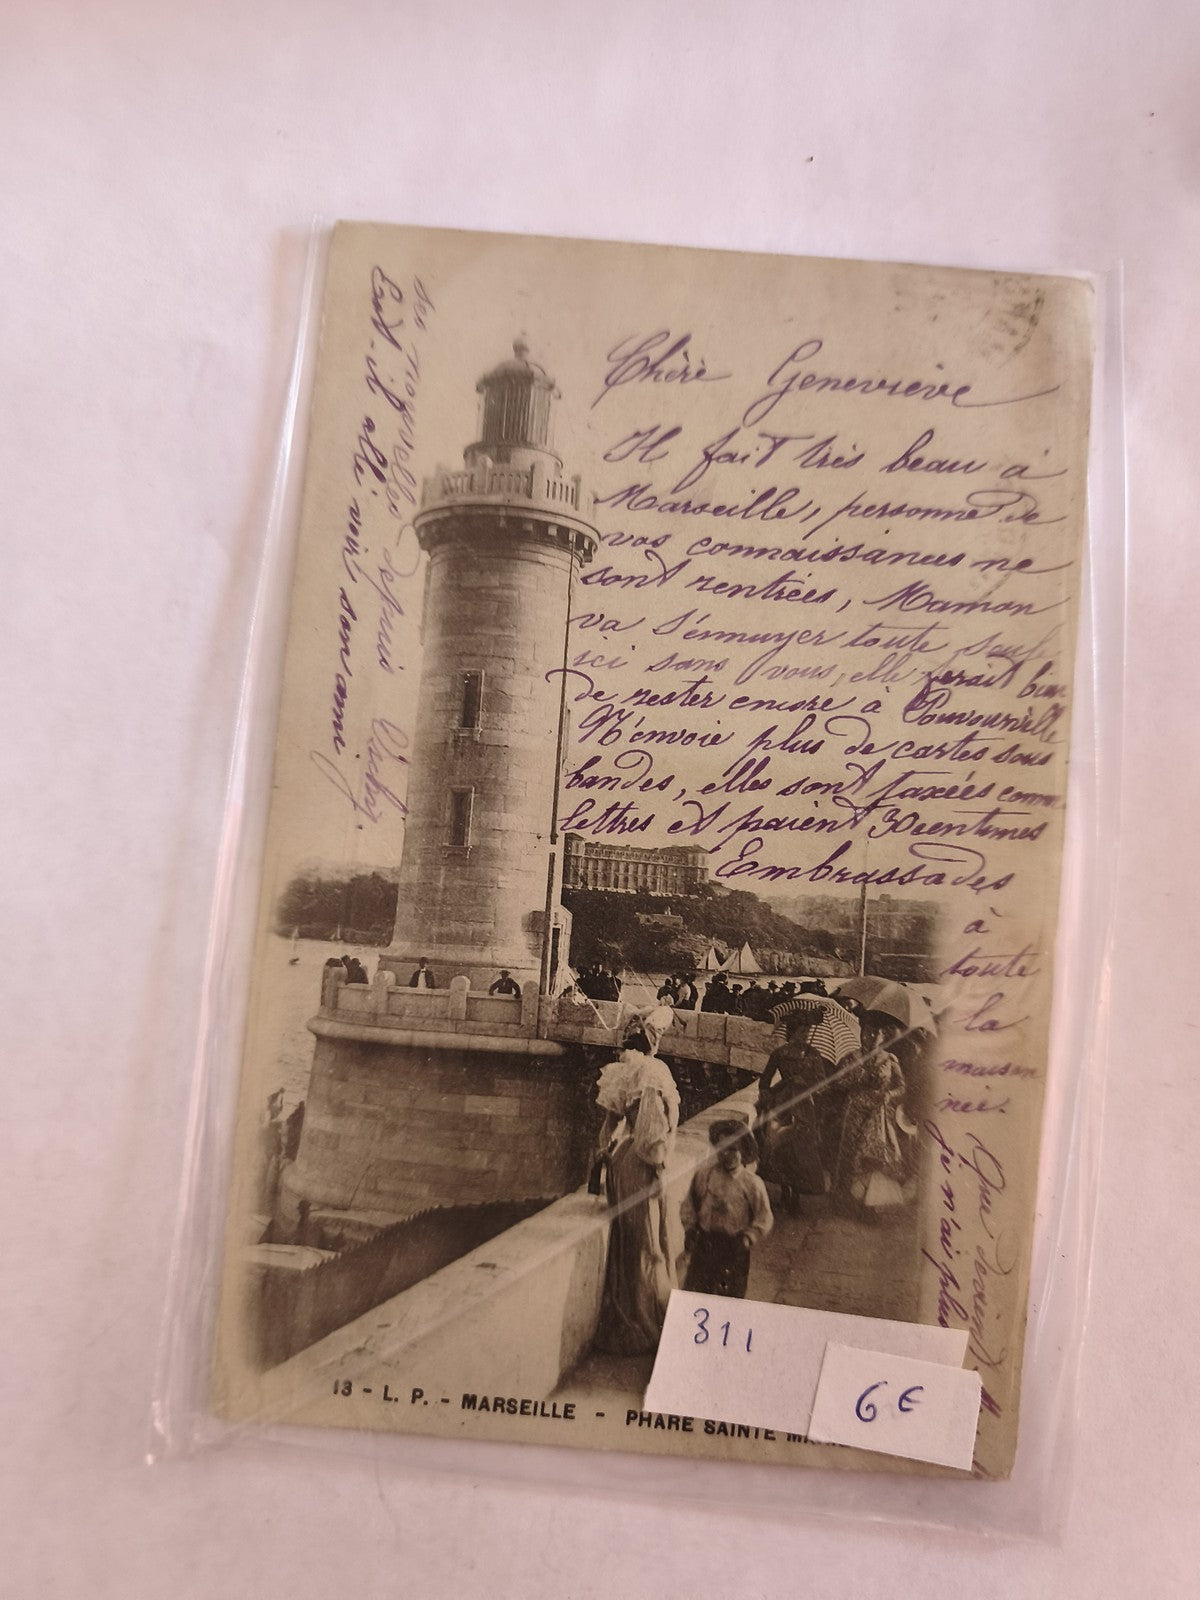 Chère Geneviève
Il fait très beau à
Marseille, personne de
vos connaissances ne
sont rentrées, Maman
va s'ennuyer toute seule
ici sans vous, elle ferait bien
de rester encore à
N'envoie plus de cartes sous
bandes, elles sont taxées comme
lettres et paient 30 centimes
Embrassades
à
toute
la
maison
née.
Que devient
je n'ai plus
des nouvelles depuis
Est-il allé voir son ami
13 - L. P. - MARSEILLE - PHARE SAINTE
311
6 €